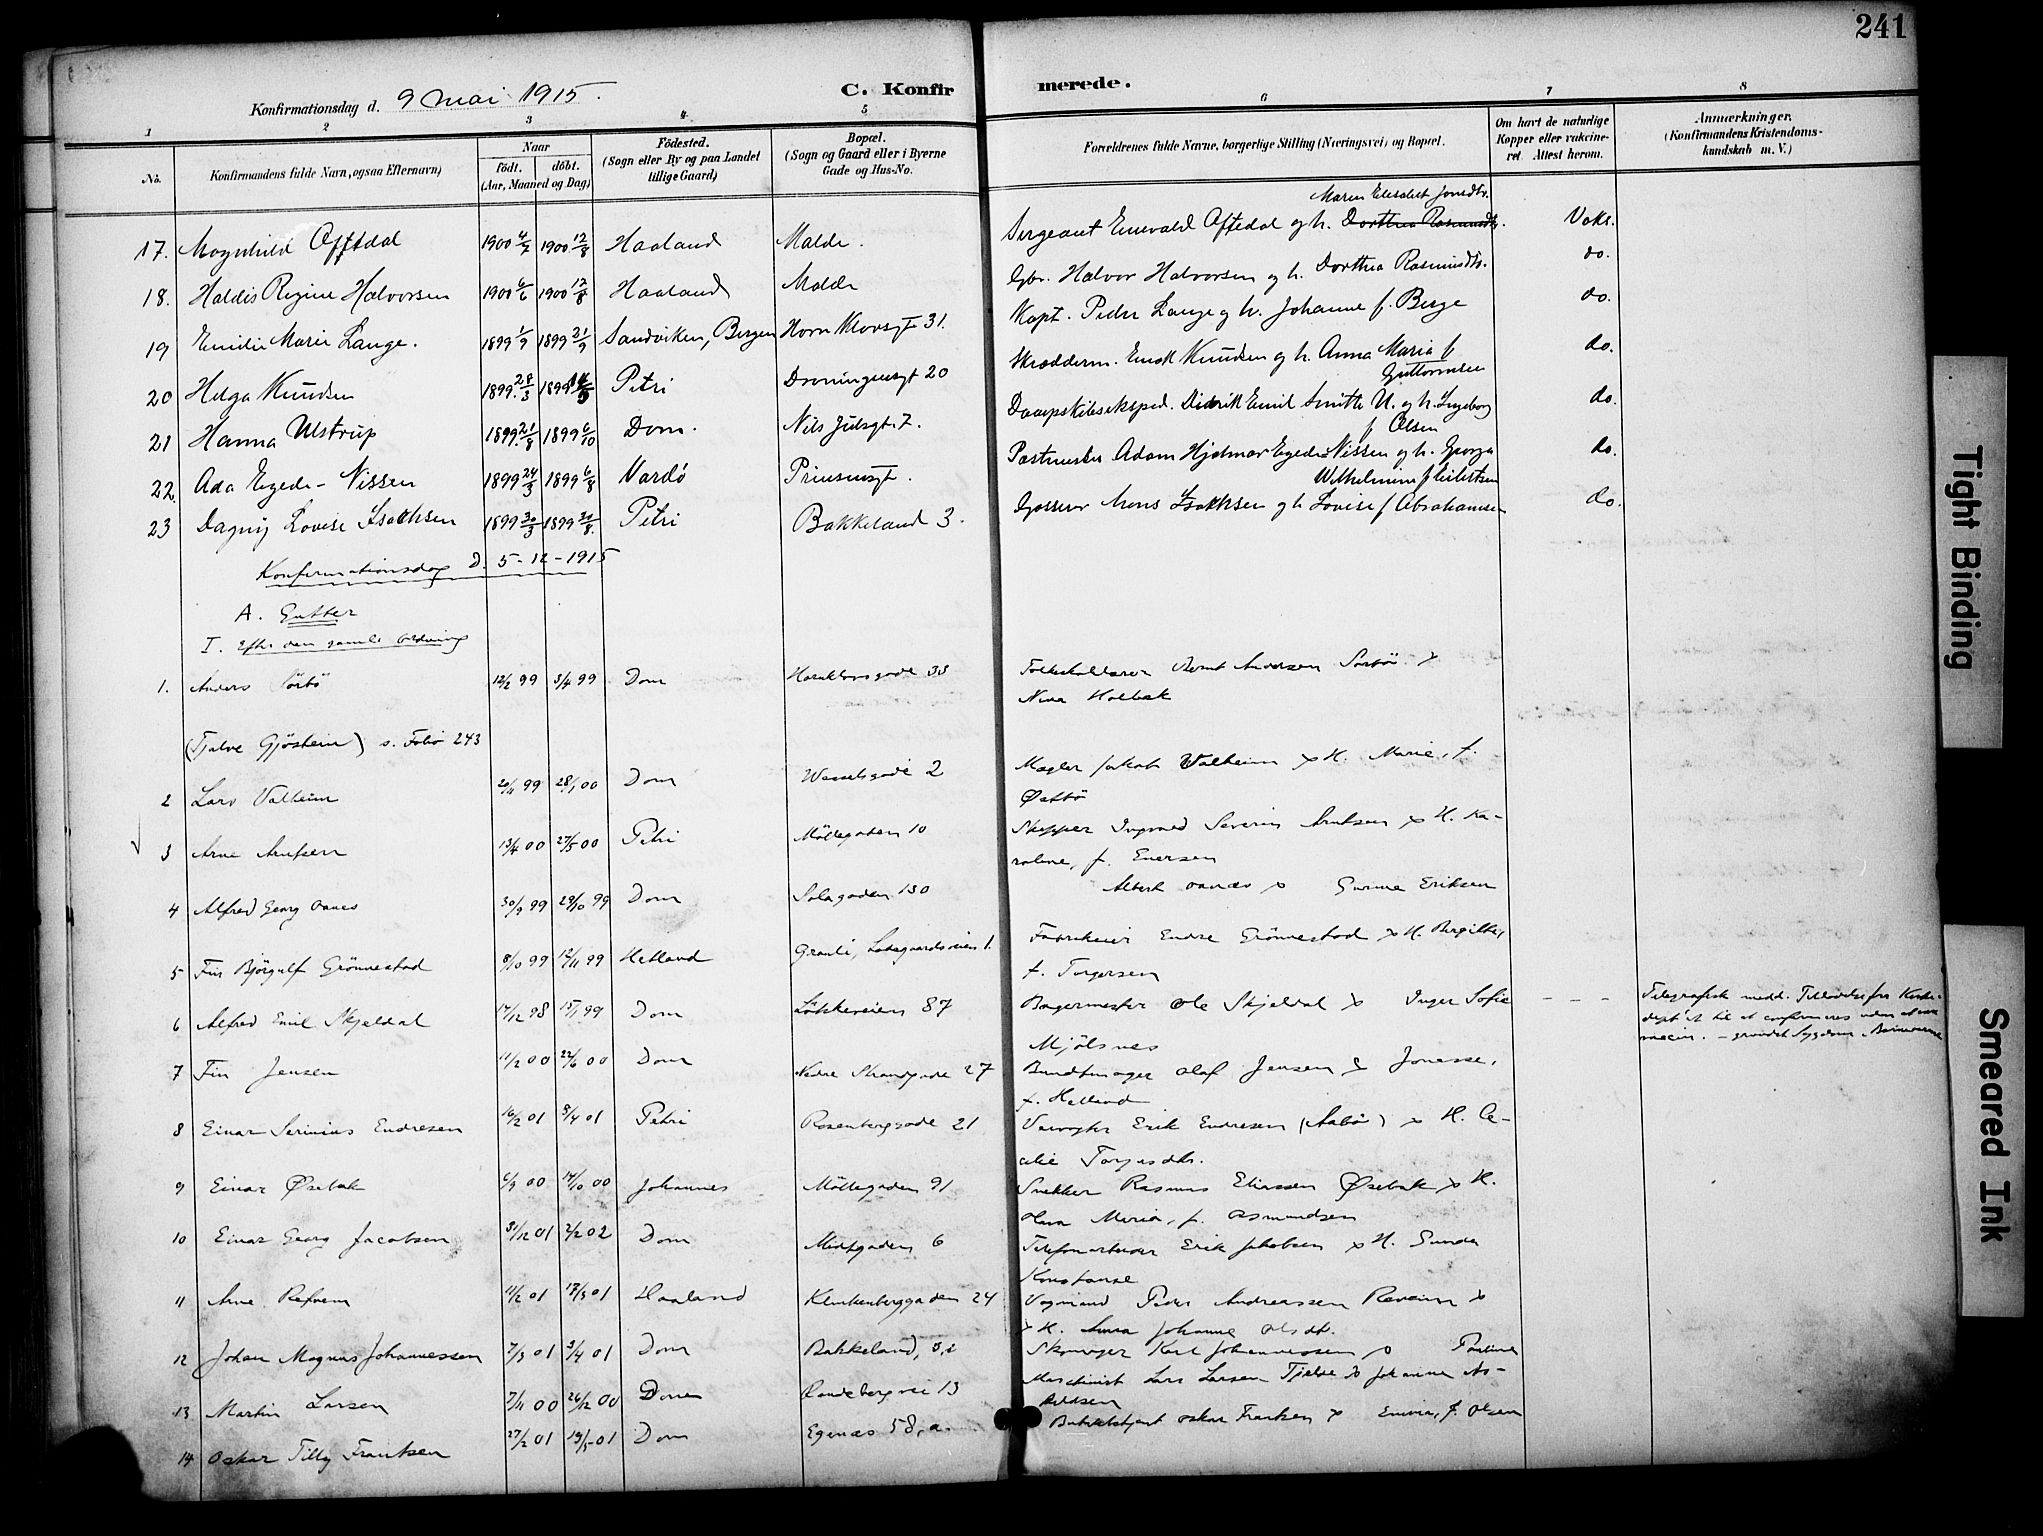 241
Konfirmationsdag d. 9 mai 1915. C. Konfirmerede.
1 2 3 4 5 6 7 8
No. Konfirmandens fulde Navn, ogsaa Efternavn) Naar født. døbt. (Aar, Maaned og Dag) Fødested. (Sogn eller By og paa Landet tillige Gaard) Bopæl. (Sogn og Gaard eller i Byerne Gade og Hus-No. Forældrenes fulde Navne, borgerlige Stilling (Næringsvei) og Bopæl. Om havt de naturlige Kopper eller vaccineret. Attest herom. Anmærkninger. (Konfirmandens Kristendomskundskab m. V.)
Maren Elisabet Jonsdtr.
17. Magnhild Aftedal 1900 4/7 1900 12/8 Haaland Malde. Sergeant Enevald Aftedal og h. Dorthea Rasmusdtr. Vaks.
18. Haldis Regine Halvorsen 1900 6/6 1900 12/8 Haaland Malde Gbr. Halvor Halvorsen og h. Dorthea Rasmusdtr. do.
19 Emilie Marie Lange. 1899 1/7 1899 21/9 Sandviken, Bergen Horn Klovsgt 31. Kapt. Peder Lange og h. Johanne f. Berge do.
20 Helga Knudsen 1899 28/3 1899 Petri Dronningensgt 20 Skrædderm. Knudsen og h. Anna Maria f. Guttormsen do.
21 Hanna Ulstrup 1899 21/8 1899 6/10 Dom. Nils Julsgt. 7. Dampskibseksped. Didrik Emil Smith U. og h. Ingeborg f Olsen do.
22 Ada Egede-Nissen 1899 24/3 1899 6/8 Vardö Prinsensgt. Postmester Adam Hjalmar Egede Nissen og h. Georga Wilhelmine f do.
23 Dagny Lovise Isaksen 1899 30/3 1899 Petri Bakkeland 3. Mons Isaksen og h Lovise f Abrahamsen do.
Konfirmationsdag D. 5-12-1915
A. Gutter
I. Efter den gamle Ordning
1. Anders Sörbö 12/2 99 3/4 99 Dom 33 Andersen Sörbö &
Nina Holbæk
(Tjalve Gjöstein) s. Folio 243
2 Lars Valheim 20/11 99 28/1 00 Dom Wesselsgade 2 Mægler Jakob Valheim & H. Marie, f.
Østbö
3 Arne Arntsen 13/4 00 27/5 00 Petri Möllegaden 10 Skipper Ingvald Severin Arntsen & H. Ka-
roline, f. Enersen
4 Alfred Georg Oanes 30/9 99 29/10 99 Dom Solagaden 130 Albert Oanæs & Gurine Eriksen
5 Fin Björgulf Grönnestad 8/10 99 12/11 99 Hetland Granli, Ladegaardsveien 1. Fabrikeier Endre Grönnestad & H. Birgitte,
f. Torgersen
6 Alfred Emil Skjeldal 17/12 98 15/1 99 Dom Lökkeveien 87 Bagermester Ole Skjeldal & Inger Sofie - - - Telegrafisk medd. Tilladelse fra Kirke-
Mjölsnes
7 Fin Jensen 11/2 00 22/6 00 Dom Nedre Strandgade 27 Bundtmager Olaf Jensen & Jonasse,
f. Helland
8 Einar Serinius Endresen 16/2 01 8/4 01 Petri Rosenberggade 21 Erik Endresen (Aabö) & H. Ce-
cilie Torgersdtr.
9 Einar Øsebak 6/9 00 14/10 00 Johannes Möllegaden 91 Snekker Rasmus Eliassen Øsebak & H.
Olava Maria, f. Asmundsen
10 Einar Georg Jacobsen 31/12 01 2/2 02 Dom Midtgaden 6 Telefonarbeider Erik Jakobsen & H. Gunda
Konstanse
11 Arne Refvem 11/2 01 17/3 01 Haaland Klinkenberggaden 24 Vognmand Peder Andreassen Reveim &
& H. Anna Johanne Olsdtr.
12 Johan Magnus Johannessen 7/3 01 3/4 01 Dom Bakkeland, 3, Karl Johannessen & Pauline
13 Martin Larsen 7/11 00 26/12 00 Dom Randebergvei 13 Maschinist Lars Larsen Tjelve & Johanne As-
kildsen
14 Oskar Tilly Frantsen 27/2 01 19/5 01 Dom Egenæs 58, a. Oskar Frantsen & Emma, f. Olsen
Tight Binding
Smeared Ink